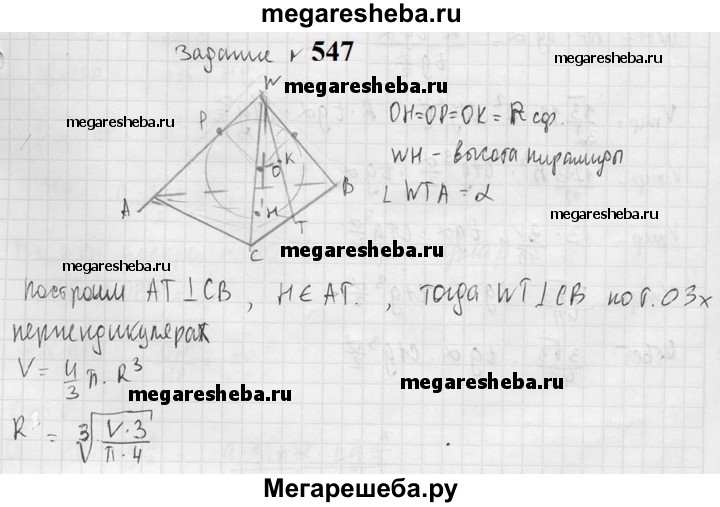 megaresheba.ru
Задание № 547
W
megaresheba.ru
megaresheba.ru
P
OH=OP=OK=Rсф.
O K
WH - высота пирамиды
megaresheba.ru
A
H
B
∠ WTA = α
T
C
megaresheba.ru
megaresheba.ru
Построим AT⊥CB, H∈AT., тогда WT⊥CB по т. о 3х
перпендикулярах
V = 4/3 π · R³
megaresheba.ru
megaresheba.ru
R = ∛(V·3/π·4)
Мегарешеба.ру